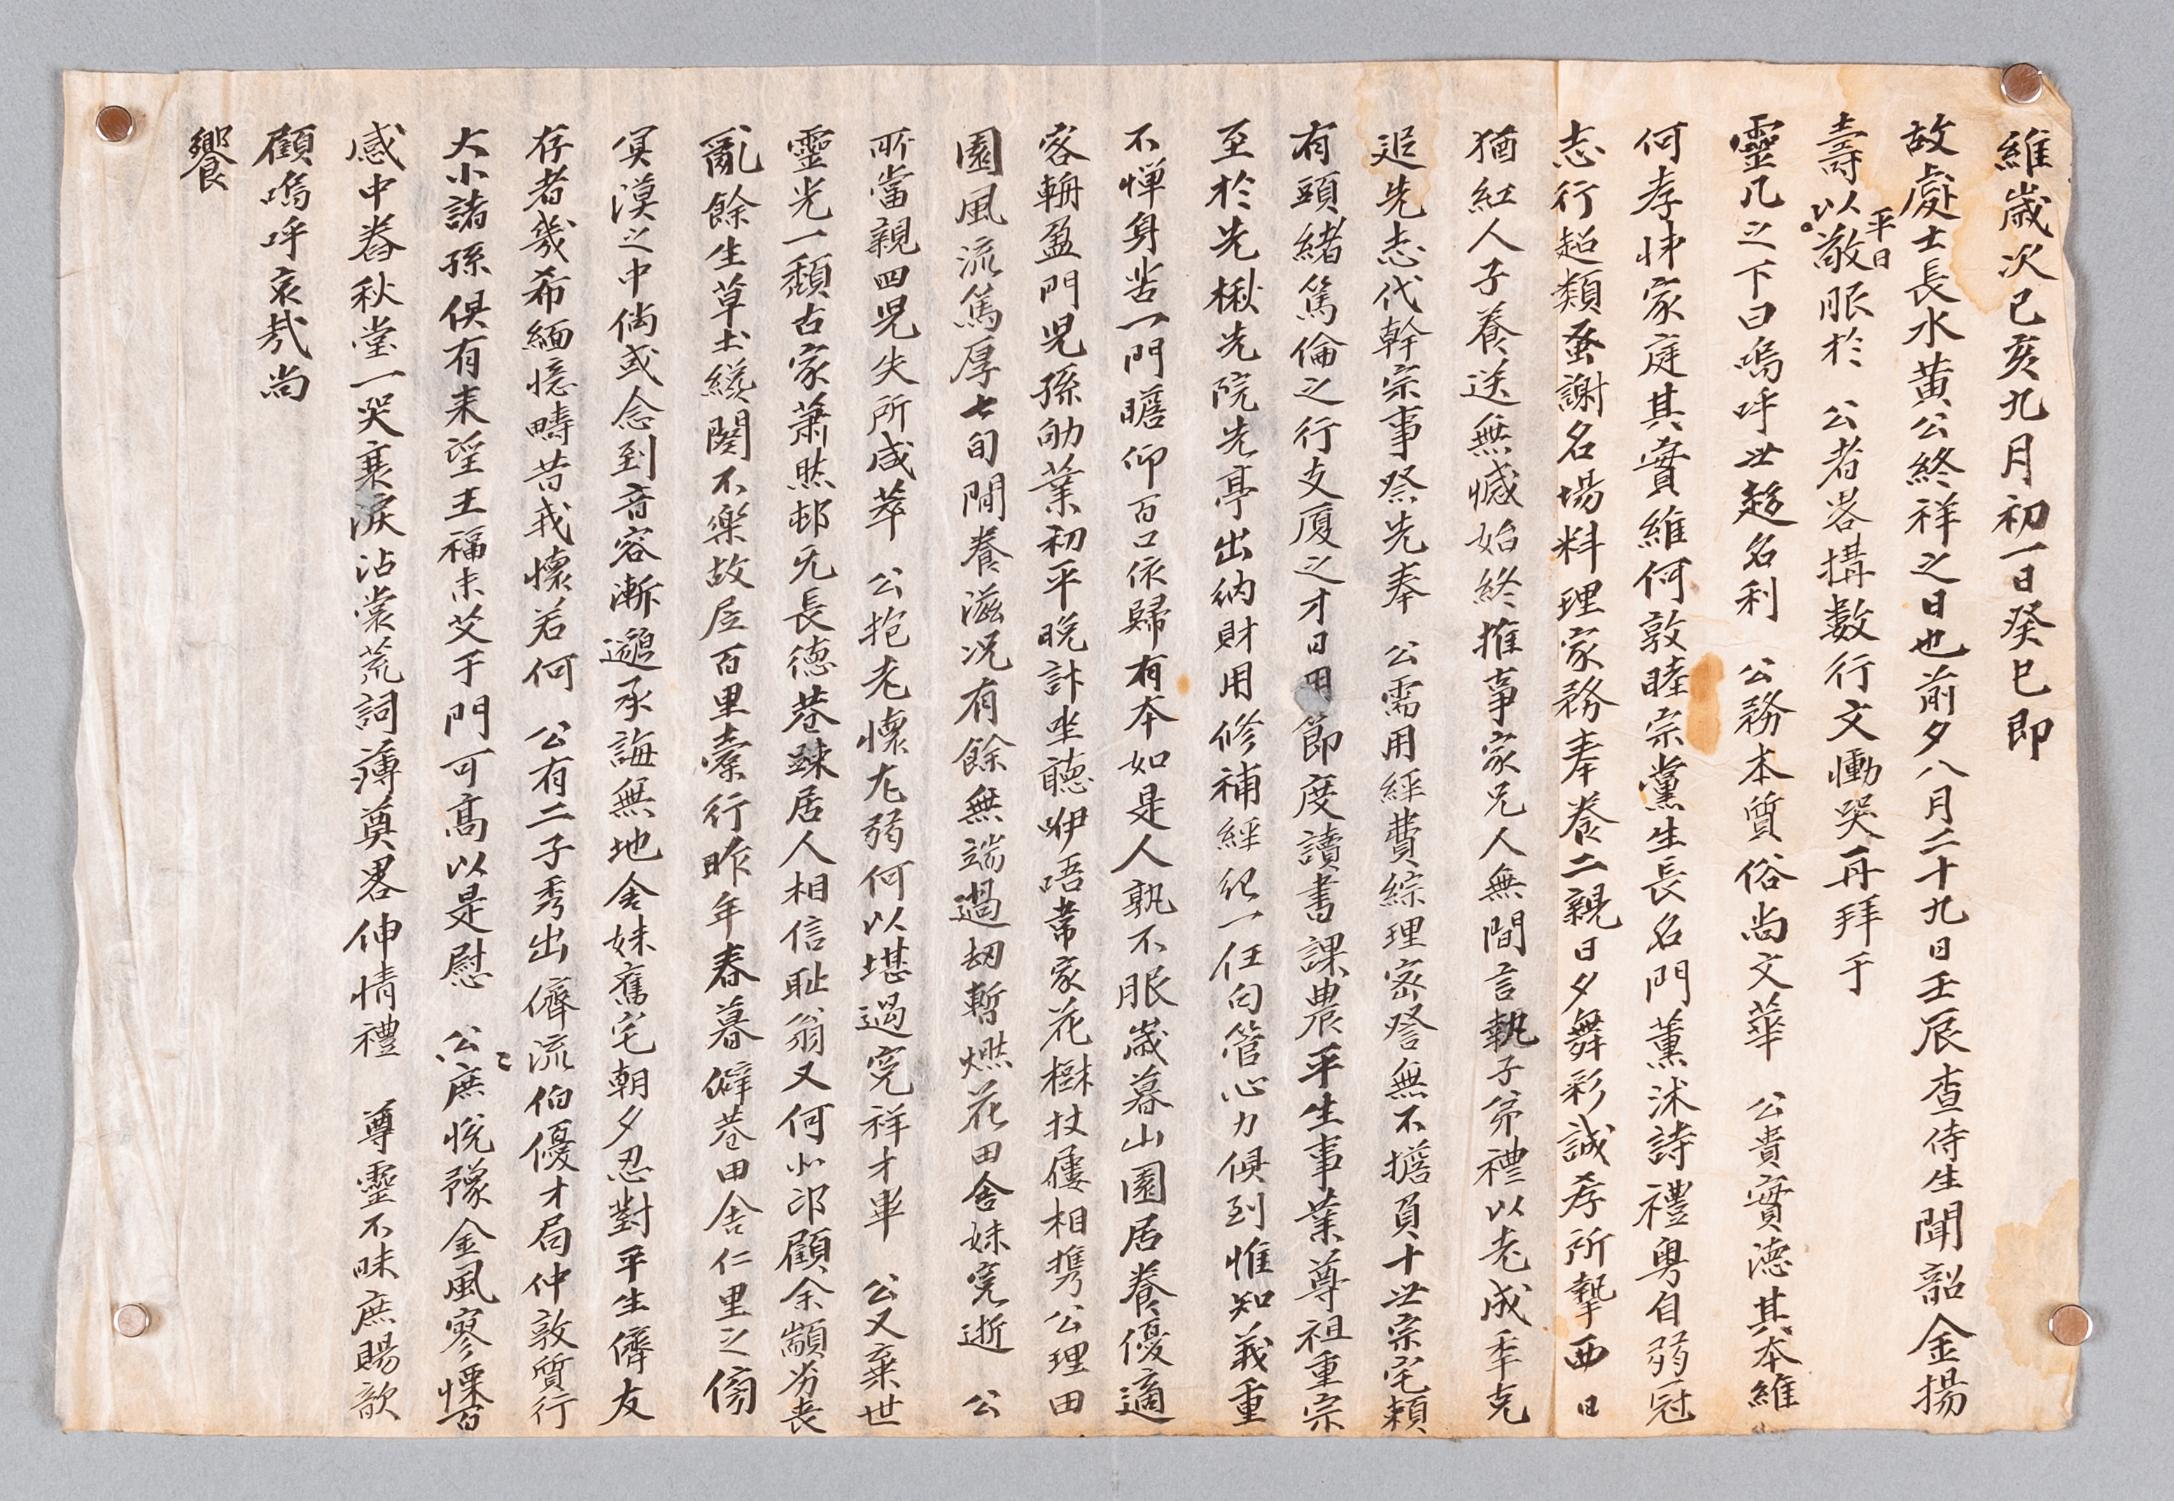 維歲次己亥九月初一日癸巳即
故處士長水黃公終祥之日也前夕八月二十九日壬辰査侍生聞韶金揚
壽以平日敬服於 公者畧搆數行文慟哭再拜于
靈几之下曰嗚呼世趍名利 公務本質俗尚文華 公貴實德其本維
何孝悌家庭其實維何敦睦宗黨生長名門薰沭詩禮粤自弱冠
志行超類蚤謝名場料理家務奉養二親日夕舞彩誠孝所摯西日
猶紅人子養送無憾始終推事家兄人無間言執子弟禮以老成季克
追先志代幹宗事祭先奉 公需用經費綜理密詧無不擔負十世宗宅頼
有頭緖篤倫之行支厦之才日用節度讀書課農平生事業尊祖重宗
至於先楸先院先亭出納財用修補經紀一任句管心力俱到惟知義重
不憚身苦一門瞻仰百口依歸有本如是人孰不服歲暮山園居養優適
客輈盈門兒孫劬業初平晩計坐聽咿唔韋家花樹杖屨相携公理田
園風流篤厚七旬間養滋况有餘無端過刼暫燃花田舍妹寃逝 公
所當親四兒失所咸萃 公抱老懷尤弱何以堪過寃祥才畢 公又棄世
靈光一頹古家蕭然邨无長德巷踈居人相信耻翁又何小邵顧余顓劣喪
亂餘生草土纔闋不樂故居百里橐行昨年春暮僻巷田舍仁里之傍
冥漠之中倘或念到音容漸邈承誨無地舍妹舊宅朝夕忍對平生儕友
存者幾希緬憶疇昔我懷若何 公有二子秀出儕流伯優才局仲敦質行
大小諸孫俱有耒望王福未艾于門可高以是慰 公公庶悅豫金風寥慄百
感中眷秋堂一哭裹淚沾裳荒詞薄奠畧伸情禮 尊靈不昧庶賜歆
顧嗚呼哀哉尚
饗